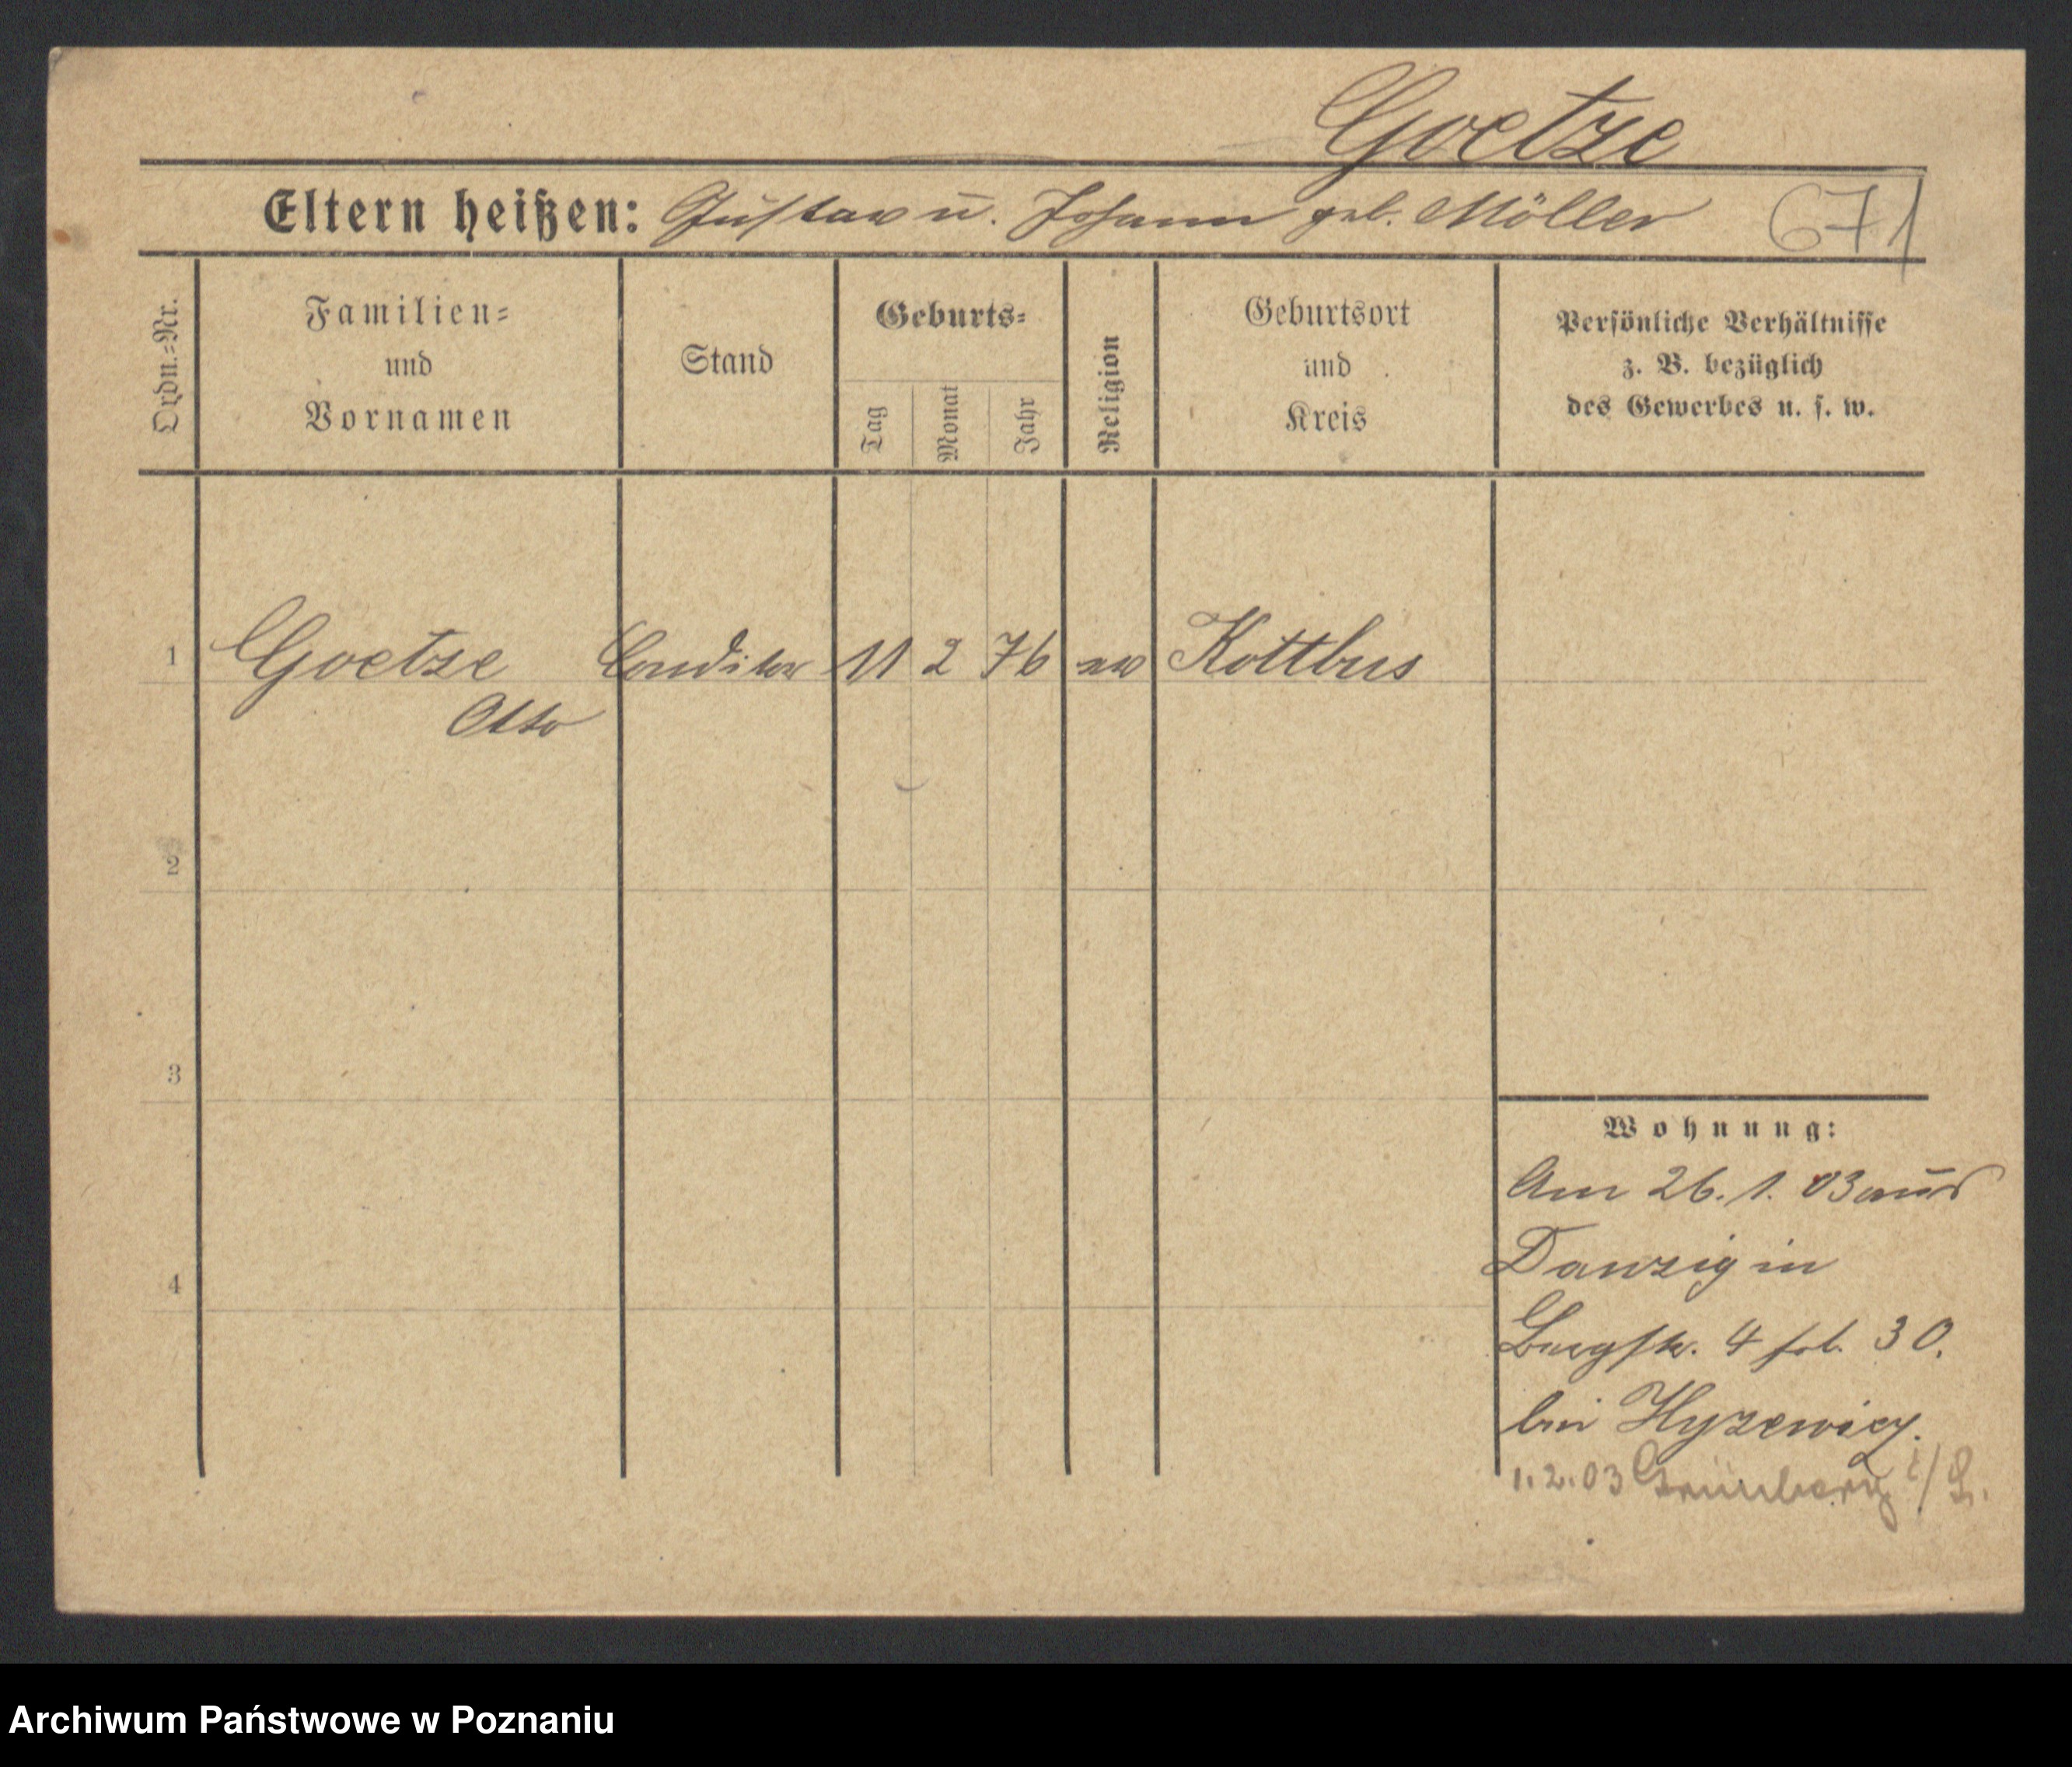 Goetze
Eltern heißen: Gustav u. Johann geb. Möller 671
Ordn.=Nr.
Familien=
und
Vornamen
Stand
Geburts=
Tag
Monat
Jahr
Religion
Geburtsort
und
Kreis
Persönliche Verhältnisse
z. B. bezüglich
des Gewerbes u. s. w.
1 Goetze Conditor 11 2 76 ev Kottbus
Otto
2
3
4
Wohnung:
Am 26. 1. 03 aus
Danzig in
Bergstr. 4 fol. 30.
bei Hyzewicz.
1.2.03 Grünberg i/S.
Archiwum Państwowe w Poznaniu